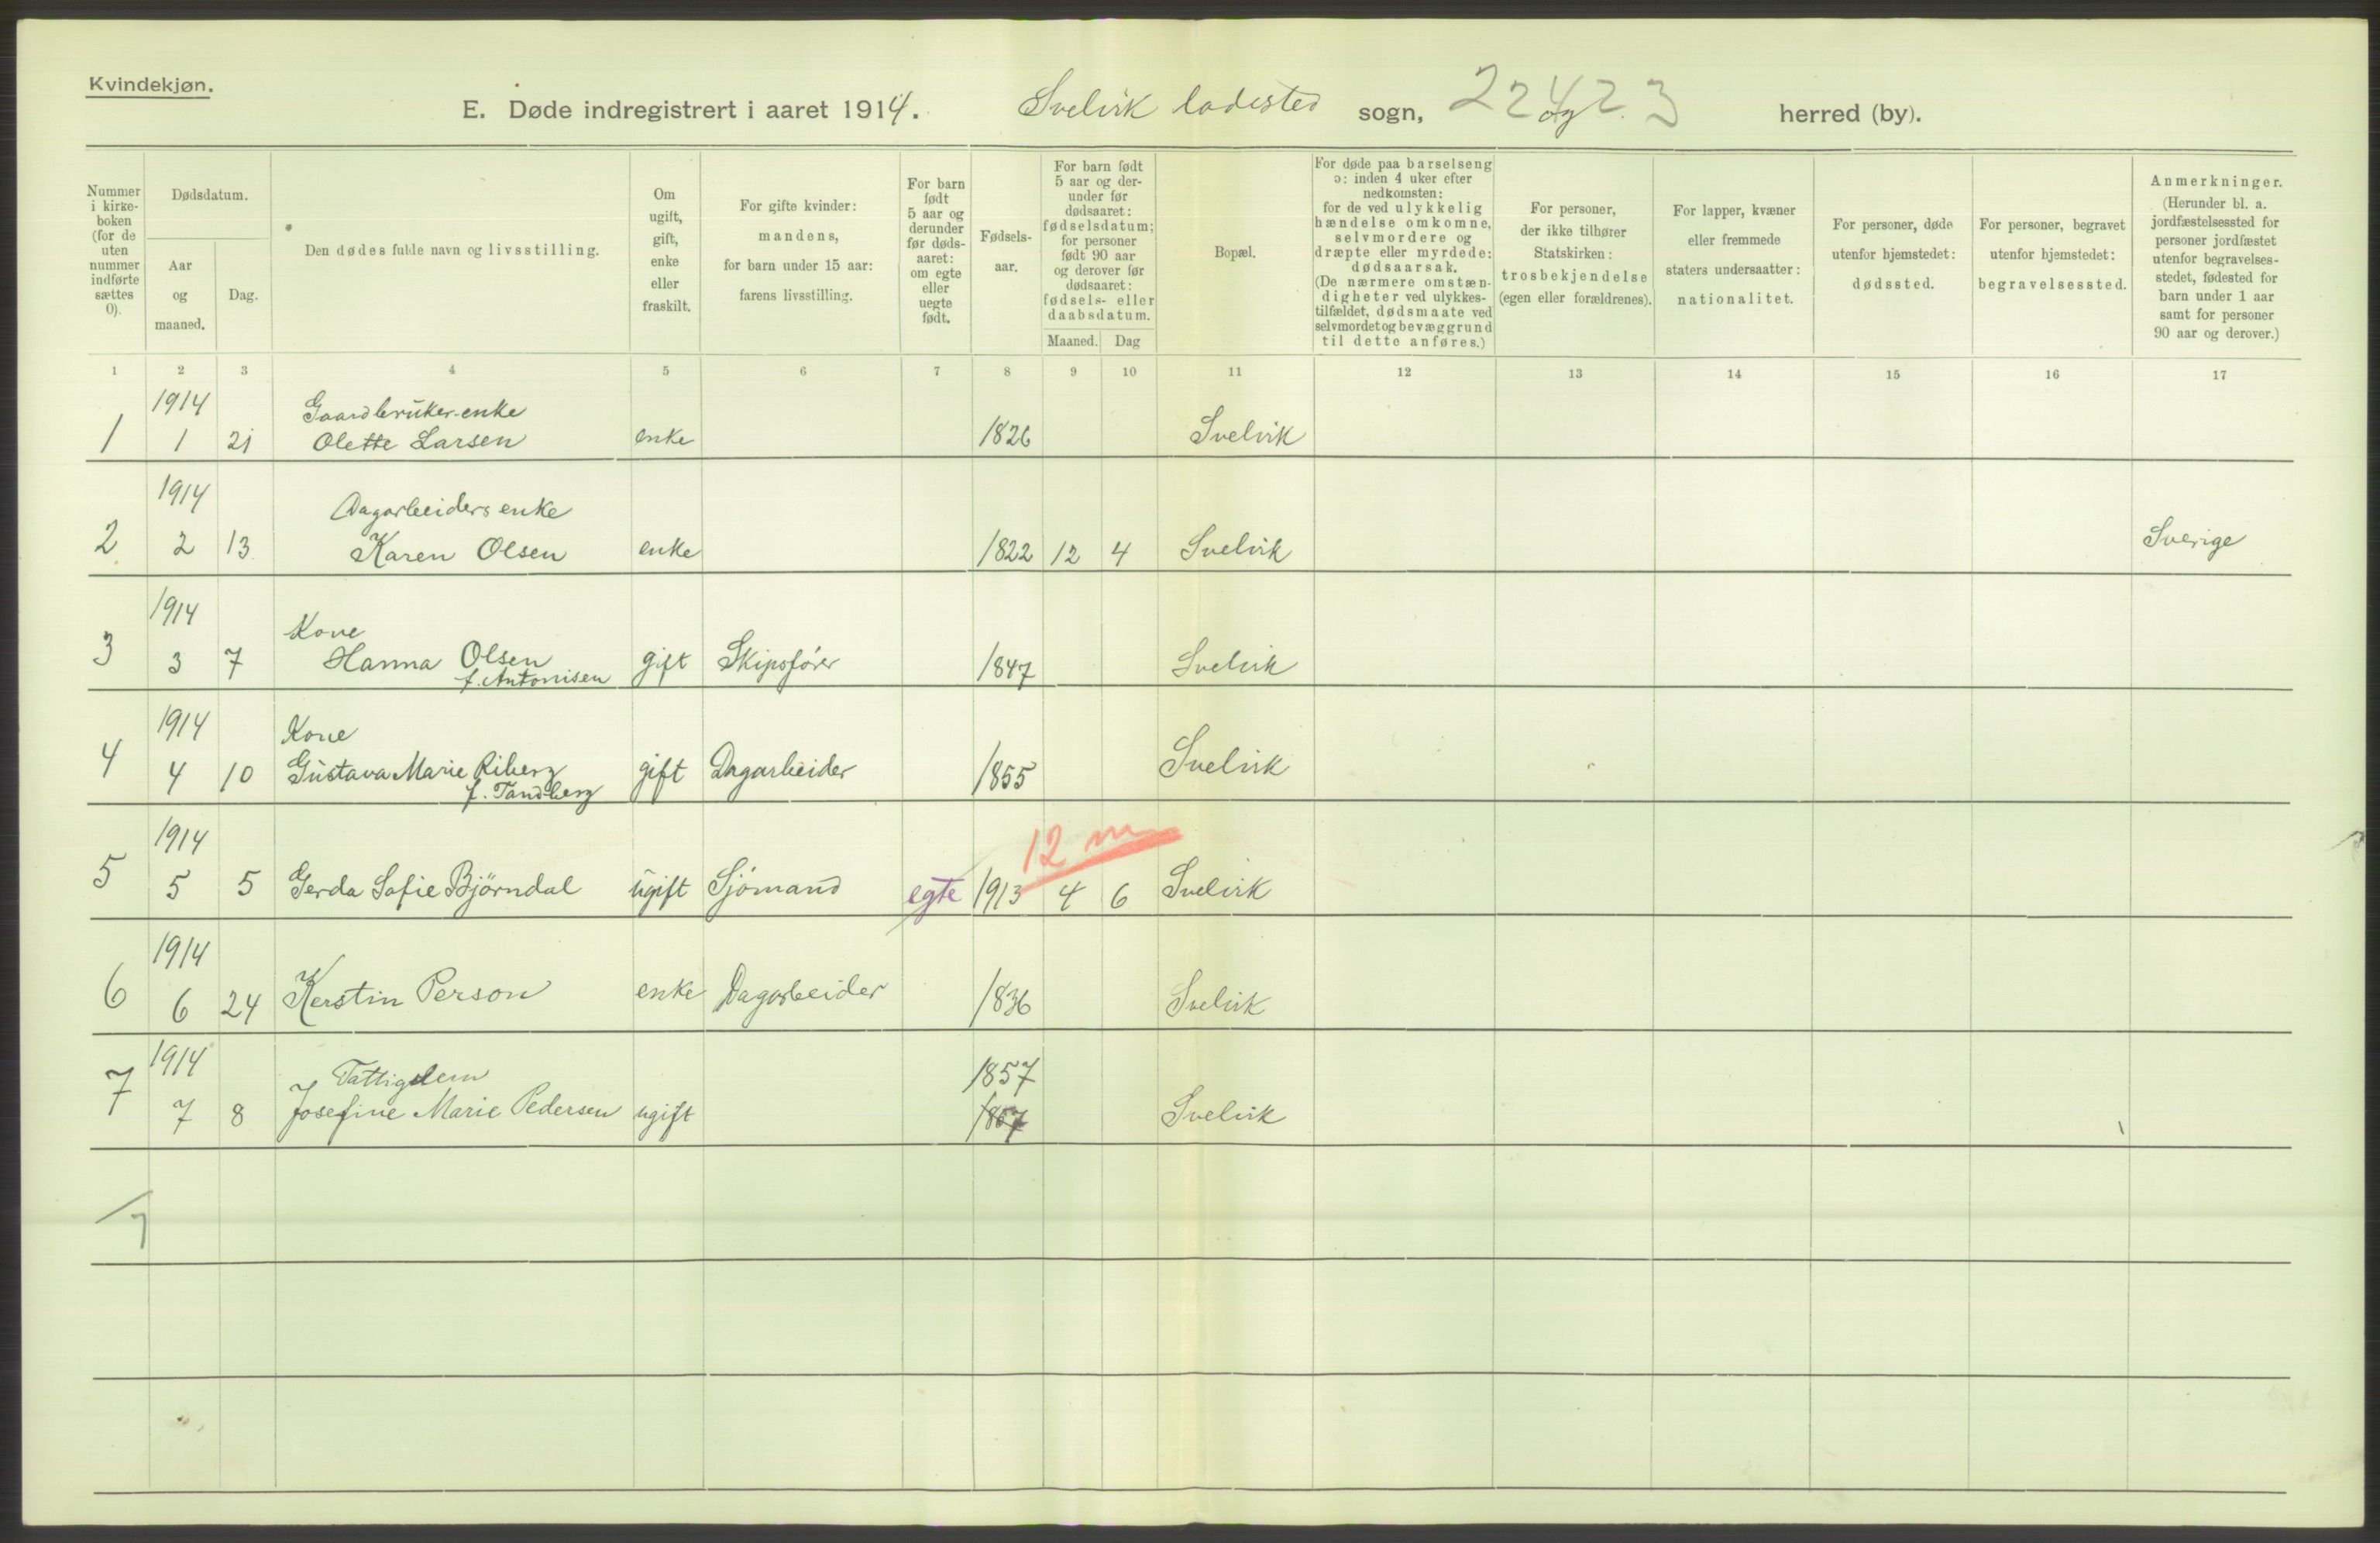 Kvindekjøn.
E. Døde indregistrert i aaret 1914. Svelvik ladested sogn, herred (by).
Nummer i kirkeboken (for de uten nummer indførte sættes 0).
Dødsdatum.
Aar og maaned.
Dag.
Den dødes fulde navn og livsstilling.
Om ugift, gift, enke eller fraskilt.
For gifte kvinder: mandens, for barn under 15 aar: farens livsstilling.
For barn født 5 aar og derunder før dødsaaret: om egte eller uegte født.
Fødselsaar.
For barn født 5 aar og derunder før dødsaaret: fødselsdatum; for personer født 90 aar og derover før dødsaaret: fødsels- eller daabsdatum.
Maaned. Dag
Bopæl.
For døde paa barselseng ɔ: inden 4 uker efter nedkomsten: for de ved ulykkelig hændelse omkomne, selvmordere og dræpte eller myrdede: dødsaarsak. (De nærmere omstændigheter ved ulykkestilfældet, dødsmaate ved selvmordet og bevæggrund til dette anføres.)
For personer, der ikke tilhører Statskirken: trosbekjendelse (egen eller forældrenes).
For lapper, kvæner eller fremmede staters undersaatter: nationalitet.
For personer, døde utenfor hjemstedet: dødssted.
For personer, begravet utenfor hjemstedet: begravelsessted.
Anmerkninger. (Herunder bl. a. jordfæstelsessted for personer jordfæstet utenfor begravelsesstedet, fødested for barn under 1 aar samt for personer 90 aar og derover.)
1 2 3 4 5 6 7 8 9 10 11 12 13 14 15 16 17
1914 Gaardbruker-enke
1 1 21 Olette Larsen enke 1826 Svelvik
1914 Dagarbeiders enke
2 2 13 Karen Olsen enke 1822 12 4 Svelvik Sverige
1914 Kone
3 3 7 Hanna Olsen gift Skipsfører 1847 Svelvik
f. Antonisen
1914 Kone
4 4 10 Gustava Marie Riberg gift Dagarbeider 1855 Svelvik
f. Tandberg
1914 12 m
5 5 5 Gerda Sofie Bjørndal ugift Sjömand egte 1913 4 6 Svelvik
1914
6 6 24 Kerstin Person enke Dagarbeider 1836 Svelvik
1914 1857
7 7 8 Josefine Marie Pedersen ugift 1867 Svelvik
7